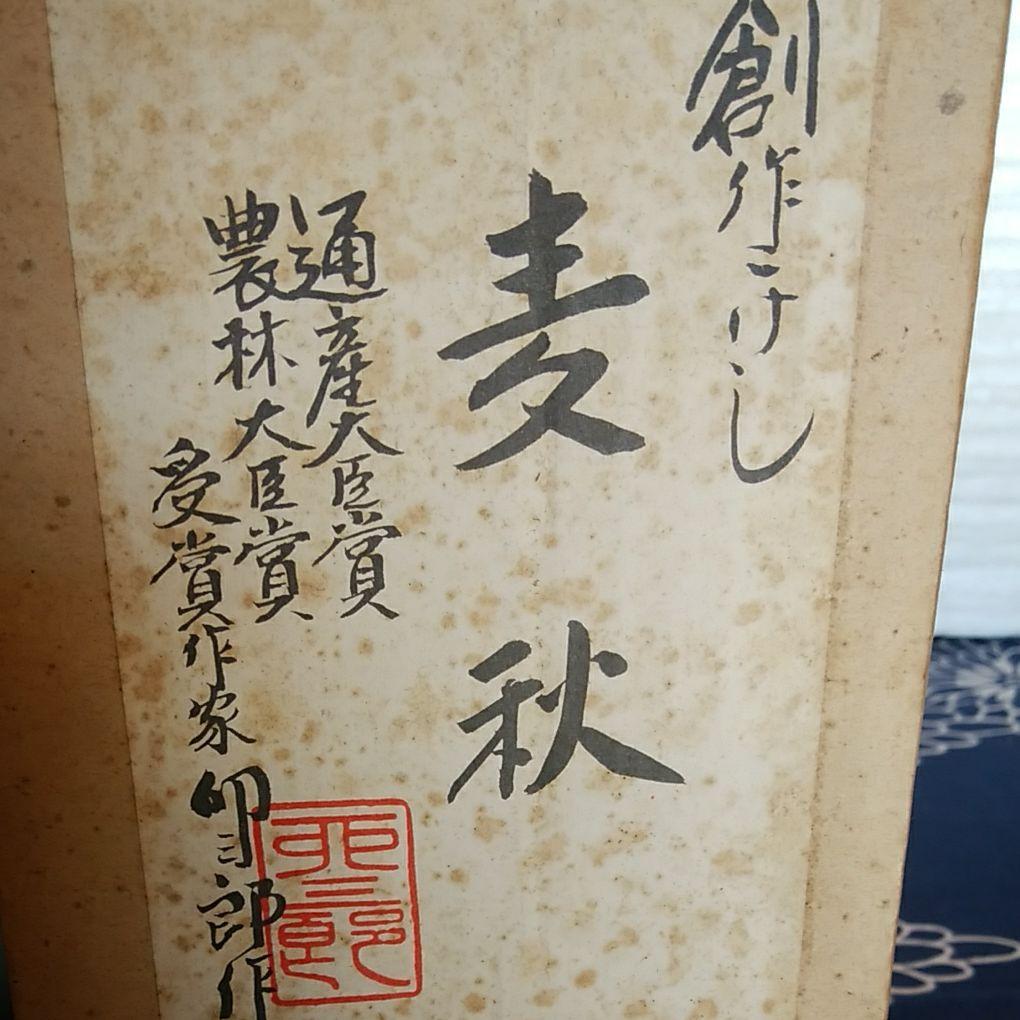 創作こけし
麦秋
通産大臣賞
農林大臣賞
受賞作家卯三郎作
卯三郎